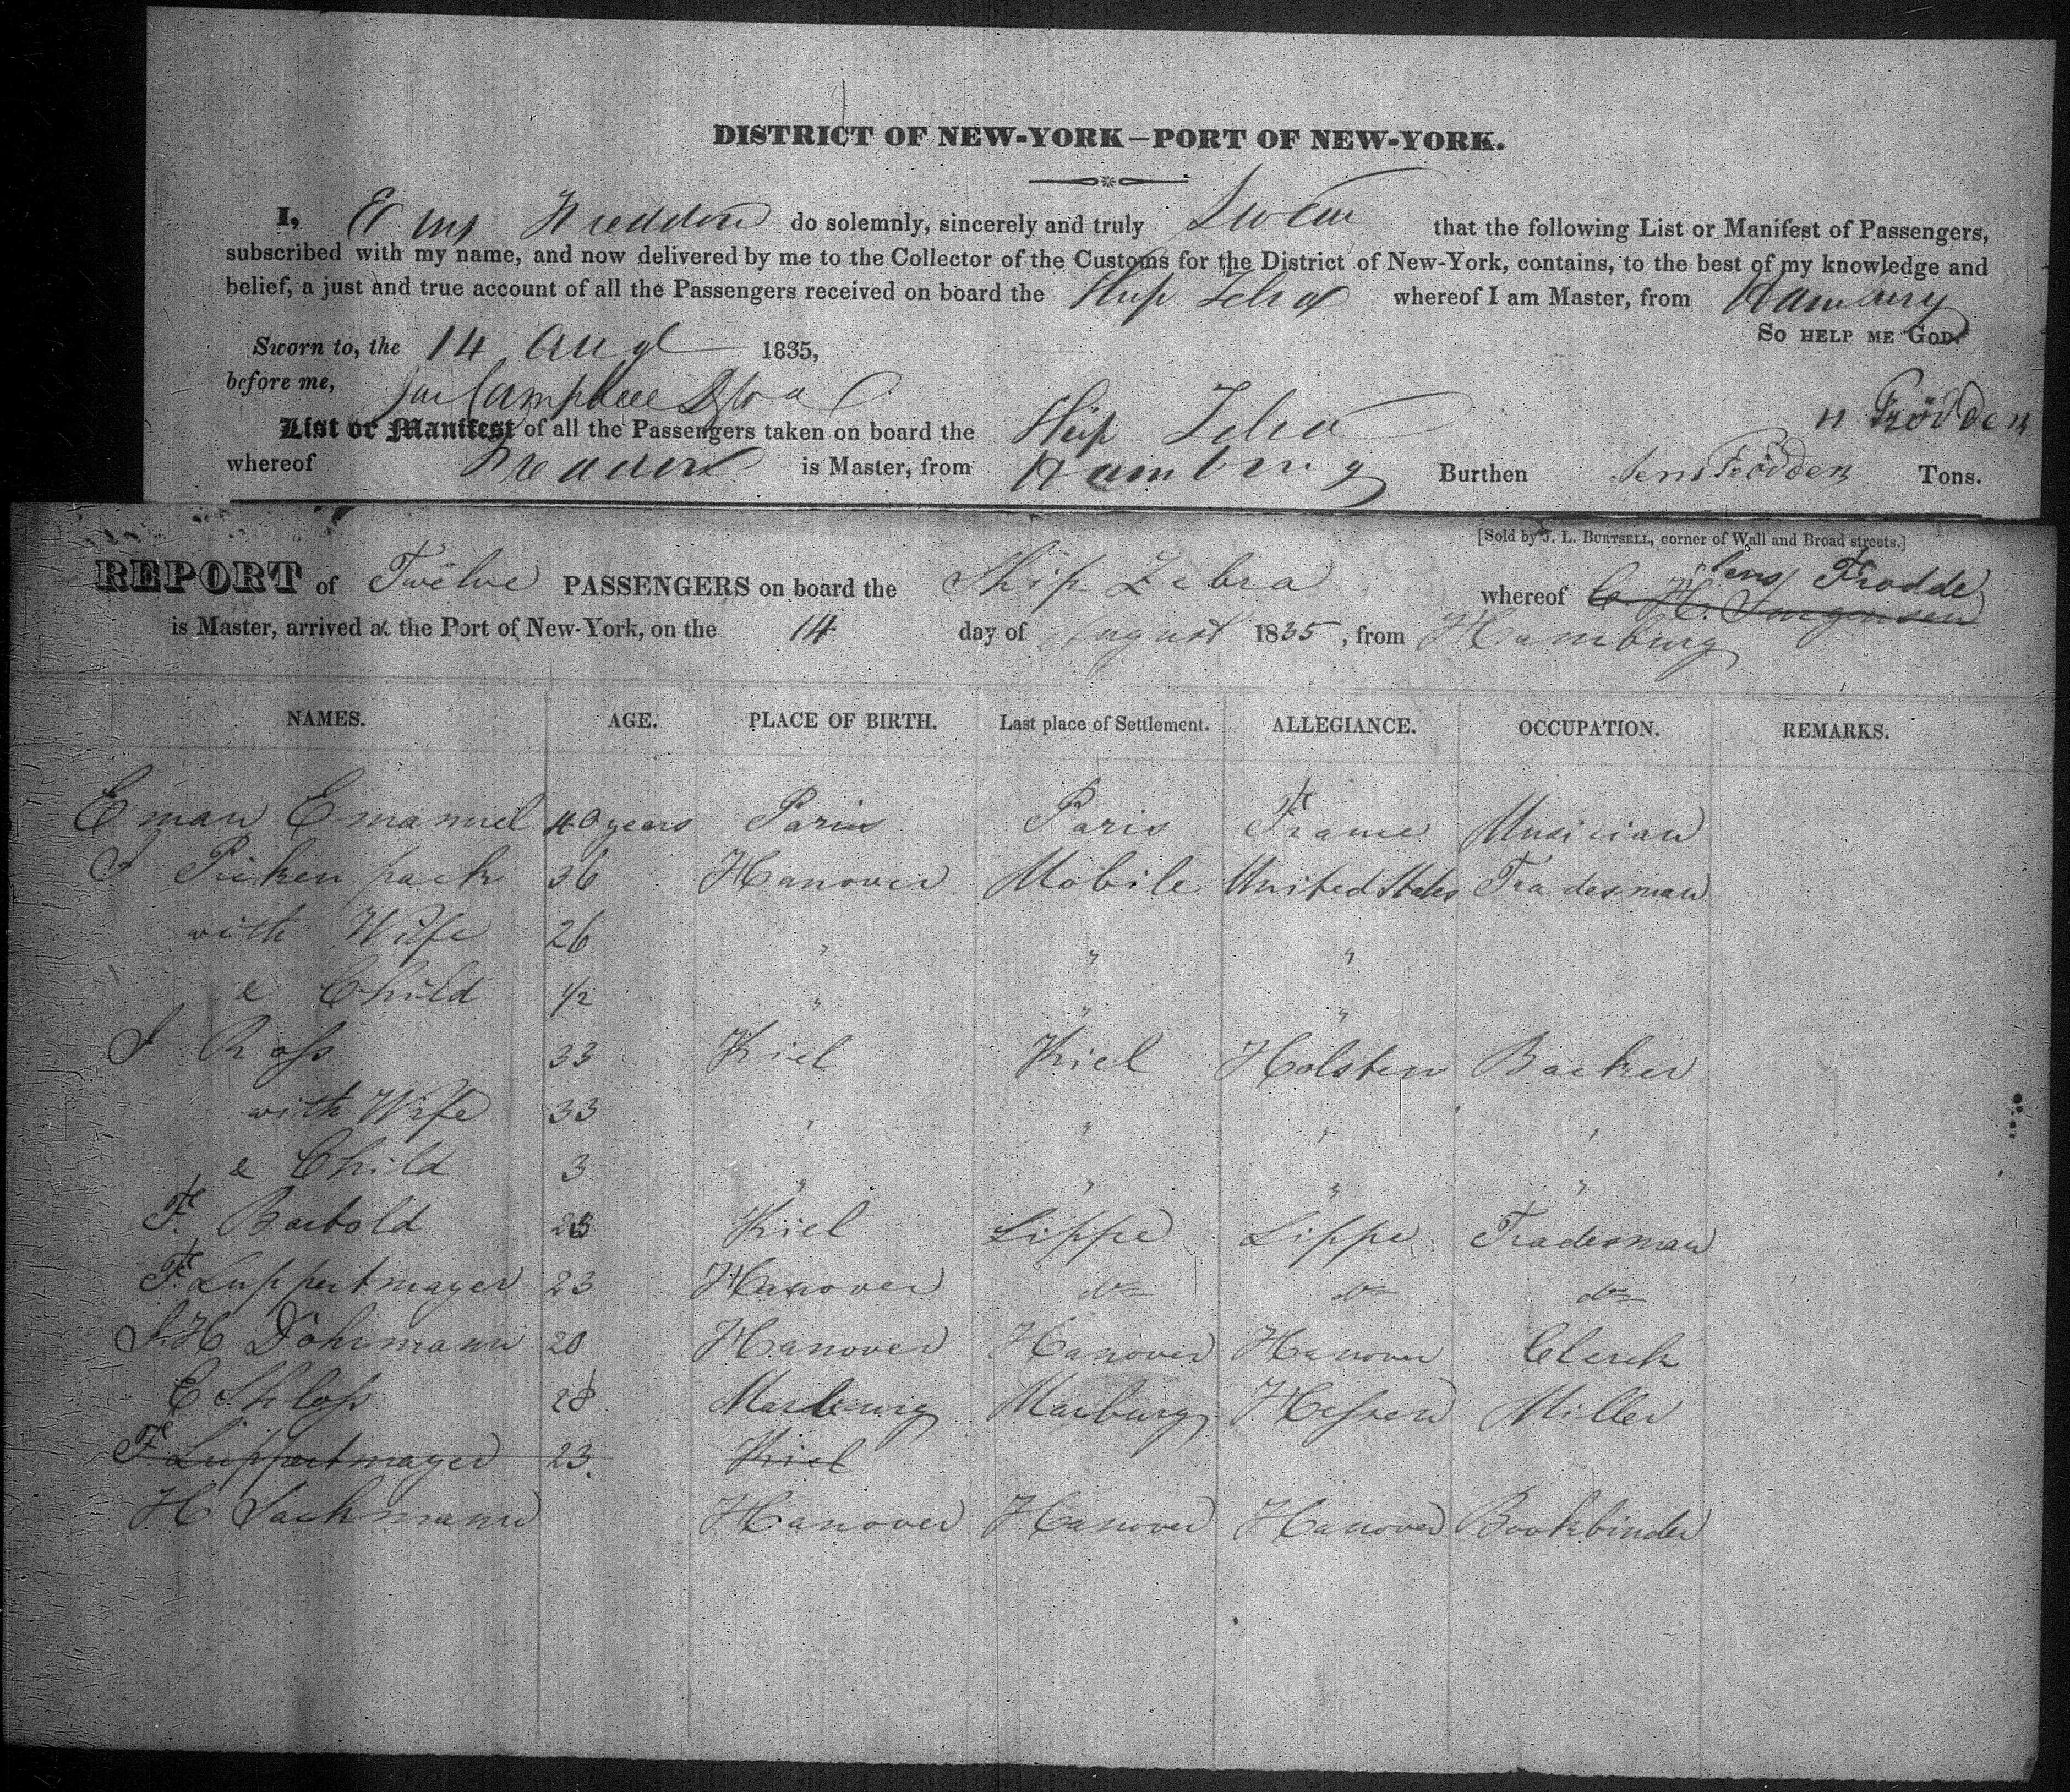 DISTRICT OF NEW-YORK—PORT OF NEW-YORK.
I, do solemnly, sincerely and truly Swear that the following List or Manifest of Passengers,
subscribed with my name, and now delivered by me to the Collector of the Customs for the District of New-York, contains, to the best of my knowledge and
belief, a just and true account of all the Passengers received on board the Ship Zebra whereof I am Master, from Hamburg
So HELP ME GOD.
Sworn to, the 14 Augt 1835,
before me, Campbell
List or Manifest of all the Passengers taken on board the Ship Zebra
whereof is Master, from Hamburg Burthen Jens Frödden Tons.
[Sold by J. L. BURTSELL, corner of Wall and Broad streets.]
REPORT of Twelve PASSENGERS on board the Ship Zebra whereof C. H. Jurgensen Jens Frodde
is Master, arrived at the Port of New-York, on the 14 day of August 1835, from Hamburg
NAMES. AGE. PLACE OF BIRTH. Last place of Settlement. ALLEGIANCE. OCCUPATION. REMARKS.
Eman Emanuel 40 years Paris Paris France Musician
J Pickenpack 36 Hanover Mobile United States Tradesman
with Wife 26 " " "
& Child 1/2 " " "
J Ross 33 Kiel Kiel Holsten Backer
with Wife 33 " " " "
& Child 3 " " " "
F. Barbold 23 Kiel Lippe Lippe Tradesman
F. Luppertmayer 23 Hanover do do do
J. H Döhrmann 20 Hanover Hanover Hanover Clerck
E Schloss 28 Marburg Marburg Hessen Miller
F Luppertmayer 23. Kiel
H Sackmann Hanover Hanover Hanover Bookbinder